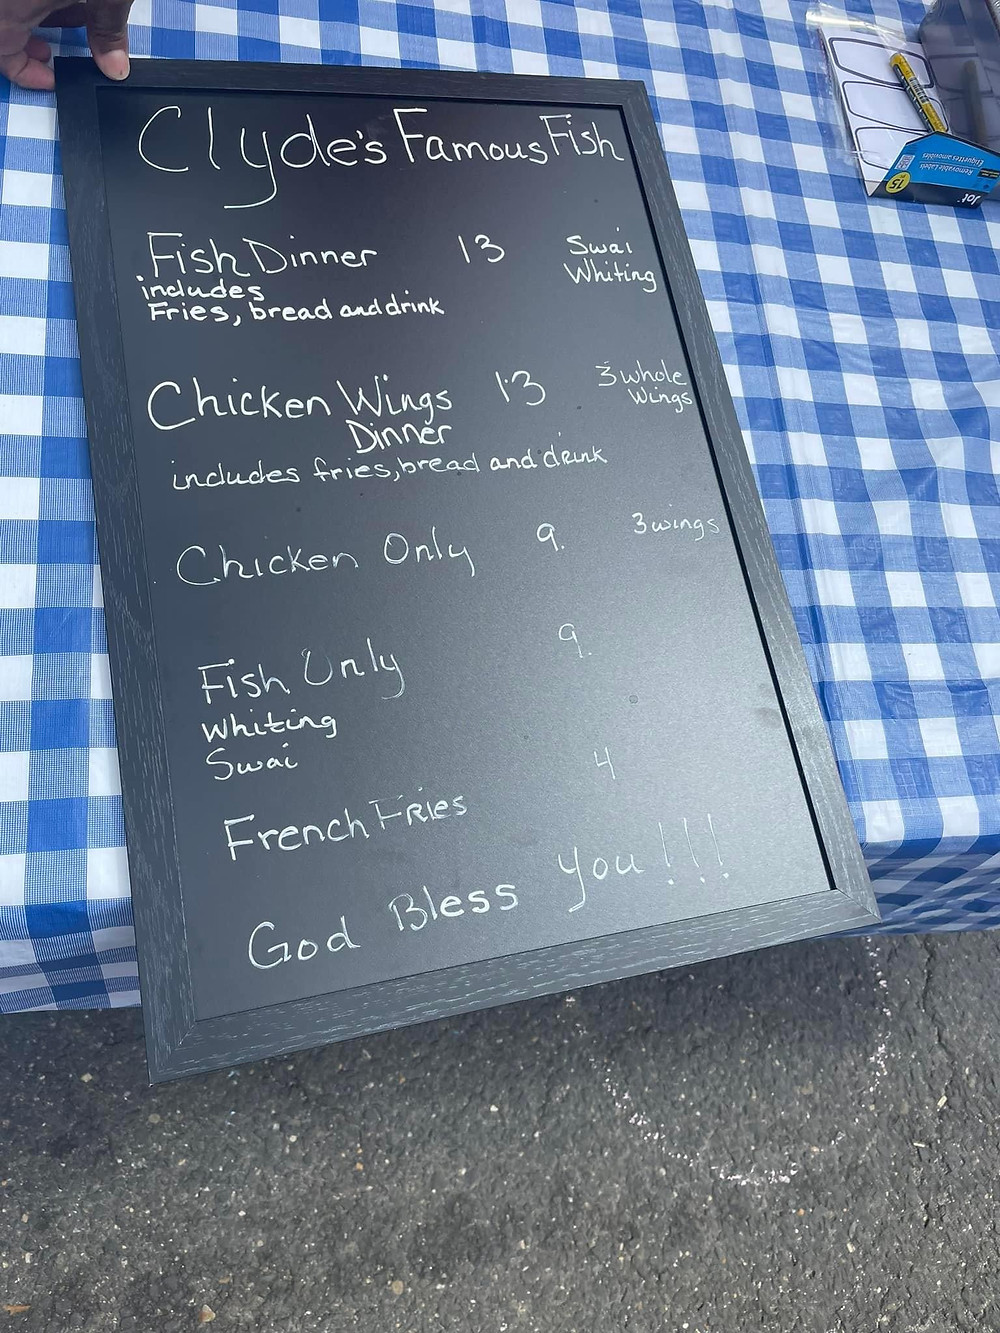 Clyde's Famous Fish
Fish Dinner 13 Swai
includes Whiting
Fries, bread and drink
Chicken Wings 13 3 whole
Dinner Wings
includes fries, bread and drink
Chicken Only 9. 3 wings
Fish Only 9.
Whiting
Swai
French Fries 4
God Bless You!!!
Removable Labels
Étiquettes amovibles
Jot
75